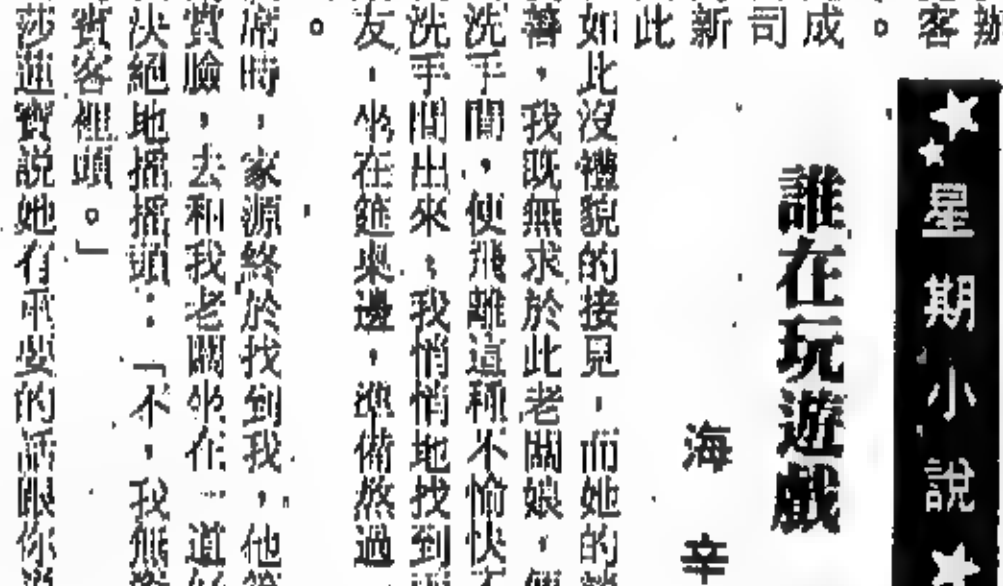 辦
客
。
成
司
新
此
★星期小說★
誰在玩遊戲
海辛
如此沒禮貌的接見,而她的
善,我既無求於此老闆娘,便
洗手間,便飛離這種不愉快
洗手間出來,我悄悄地找到
友,坐在筵桌邊,準備熬過
。
席時,家源終於找到我,他
賞臉,去和我老闆坐在一道
決絕地搖搖頭:「不,我無
賓客裡頭。」
莎蓮寶說她有重要的話跟你